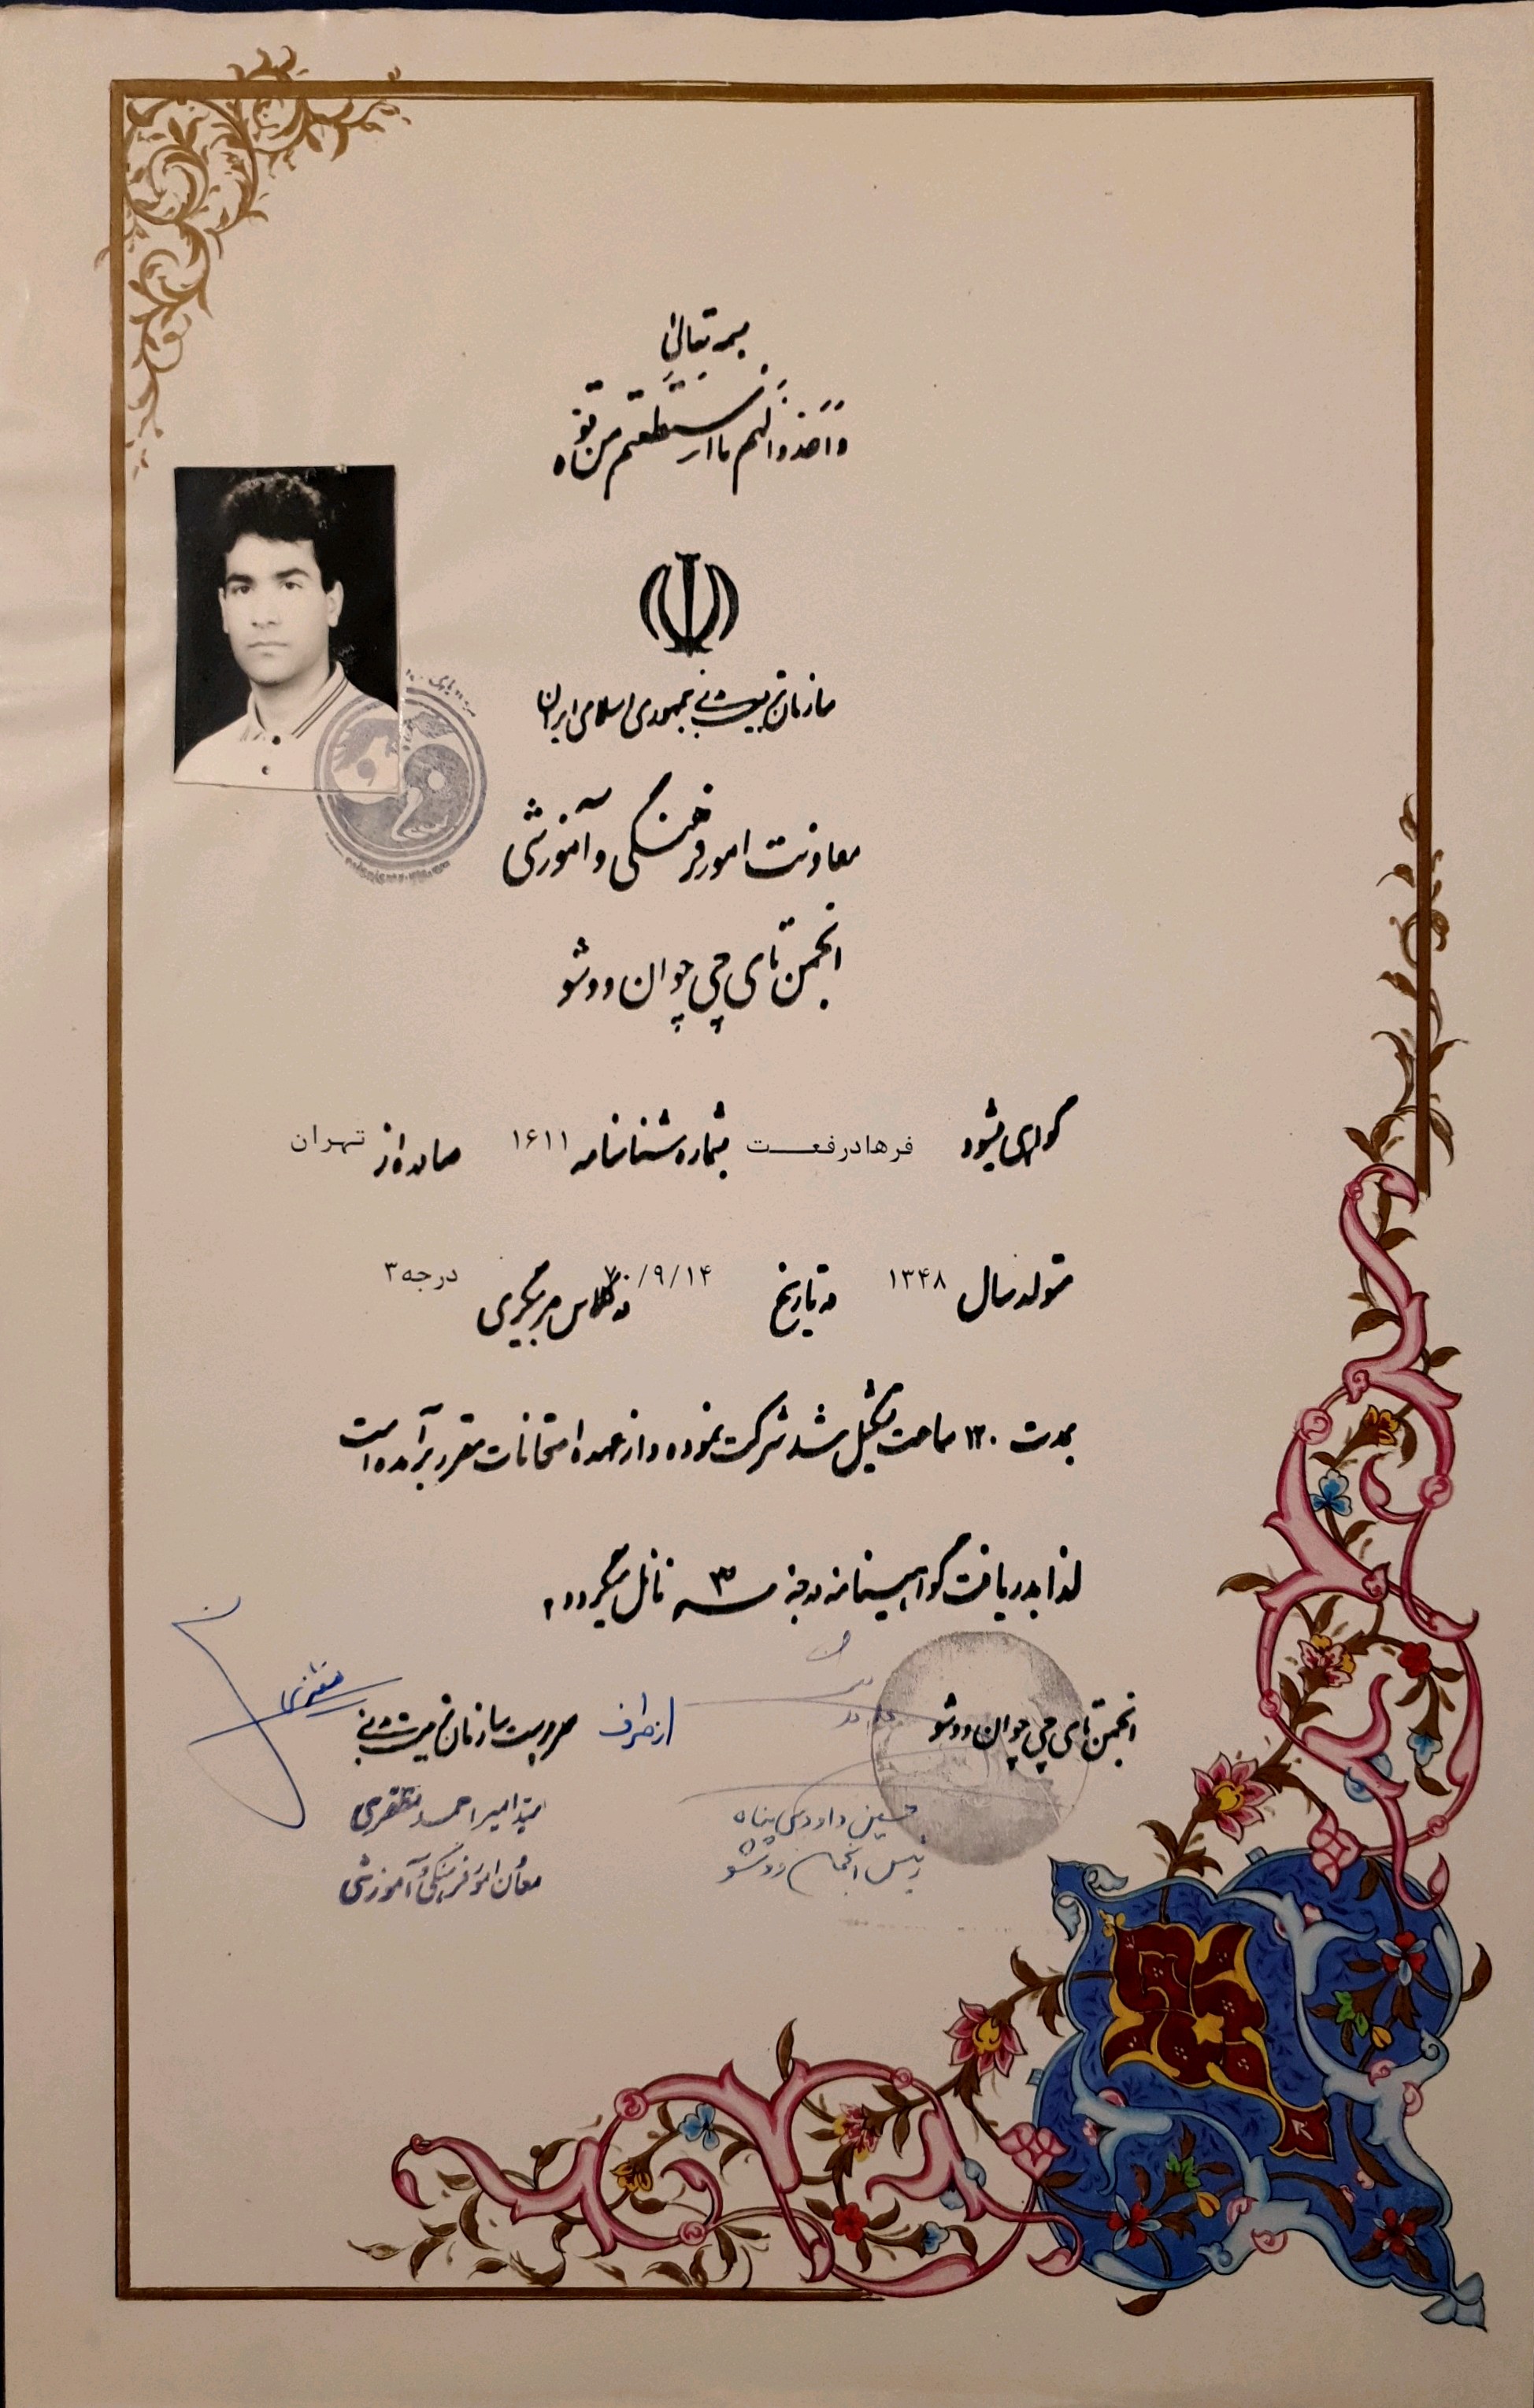 بسمه تعالی
وَاَعِدّوالَهُم مااستَطَعتُم مِن قوه
سازمان تربیت بدنی جمهوری اسلامی ایران
معاونت امور فرهنگی و آموزشی
انجمن تای چی چوان و ووشو
گواهی میشود فرهاد رفعت بشماره شناسنامه ۱۶۱۱ صادره از تهران
متولد سال ۱۳۴۸ در تاریخ ۷۰/۹/۱۴ در کلاس مربیگری درجه ۳
بمدت ۱۲۰ ساعت تشکیل شد شرکت نموده و از عهده امتحانات مقرر برآمده است
لذا بدریافت گواهینامه درجه ۳ سه نائل میگردد
انجمن تای چی چوان و ووشو
از طرف سرپرست سازمان تربیت بدنی
حسین داودی پناه
رئیس انجمن ووشو
سید امیر احمد مظفری
معاون امور فرهنگی و آموزشی